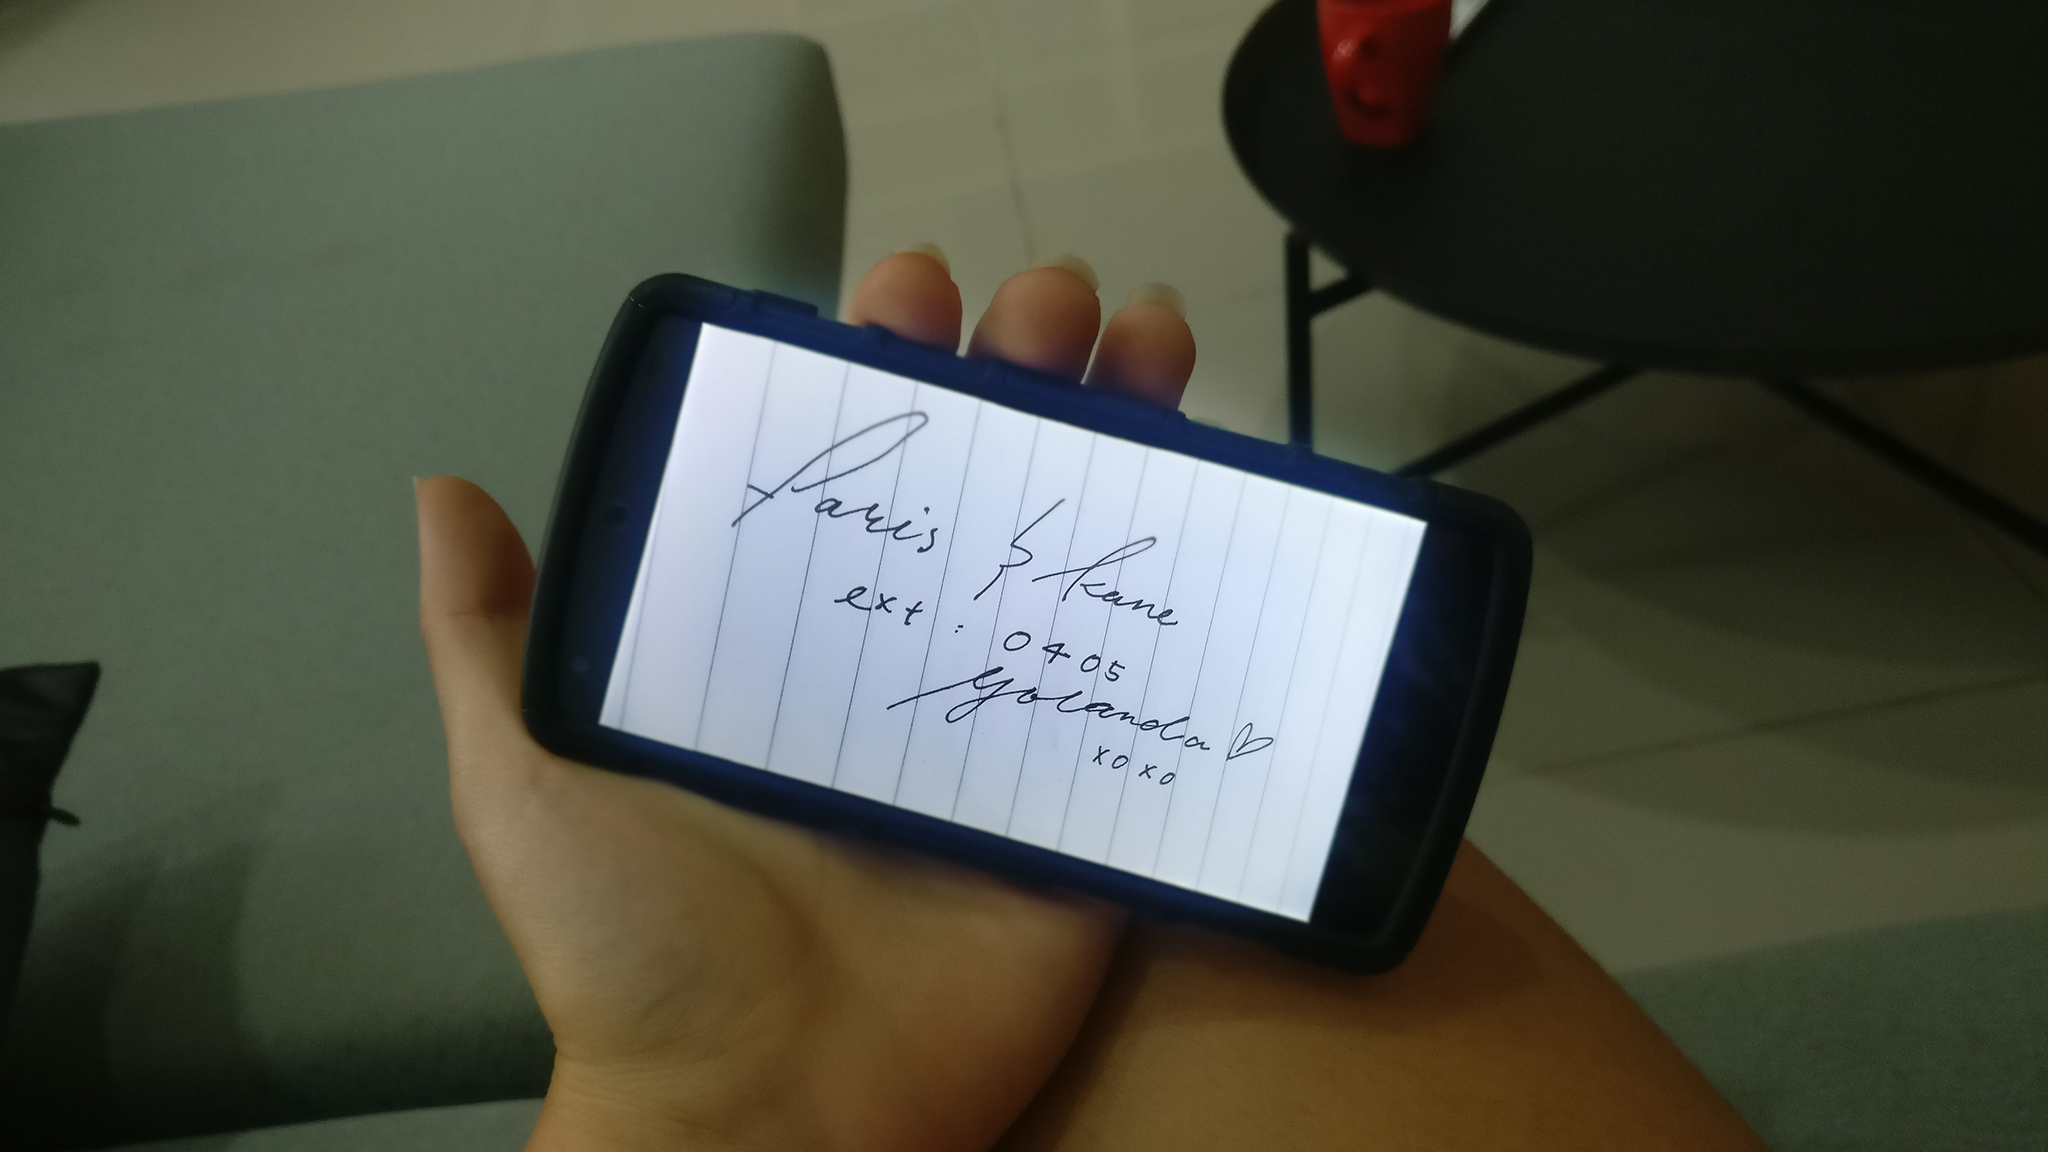 Paris & Kane
ext : 0405
Yolanda ♡
xoxo